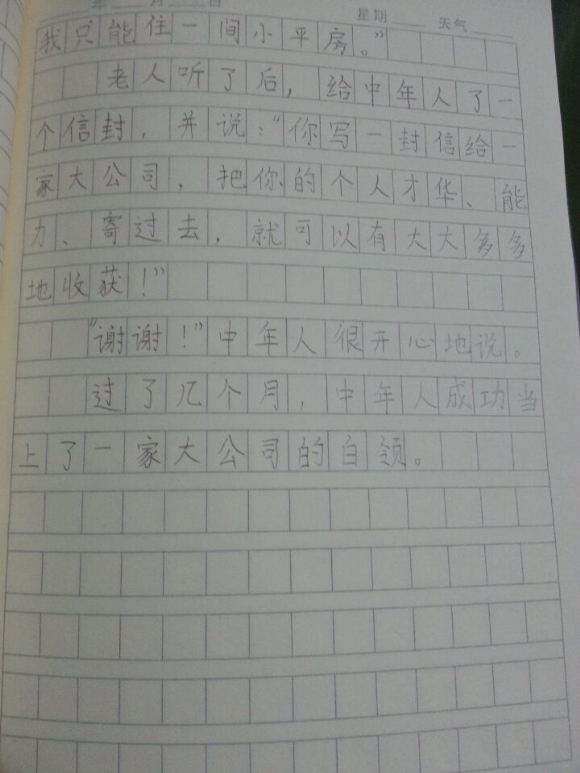 年 月 日 星期 天气
我只能住一间小平房。”
老人听了后，给中年人了一
个信封，并说：“你写一封信给一
家大公司，把你的个人才华、能
力、寄过去，就可以有大大多多
地收获！”
“谢谢！”中年人很开心地说。
过了几个月，中年人成功当
上了一家大公司的白领。